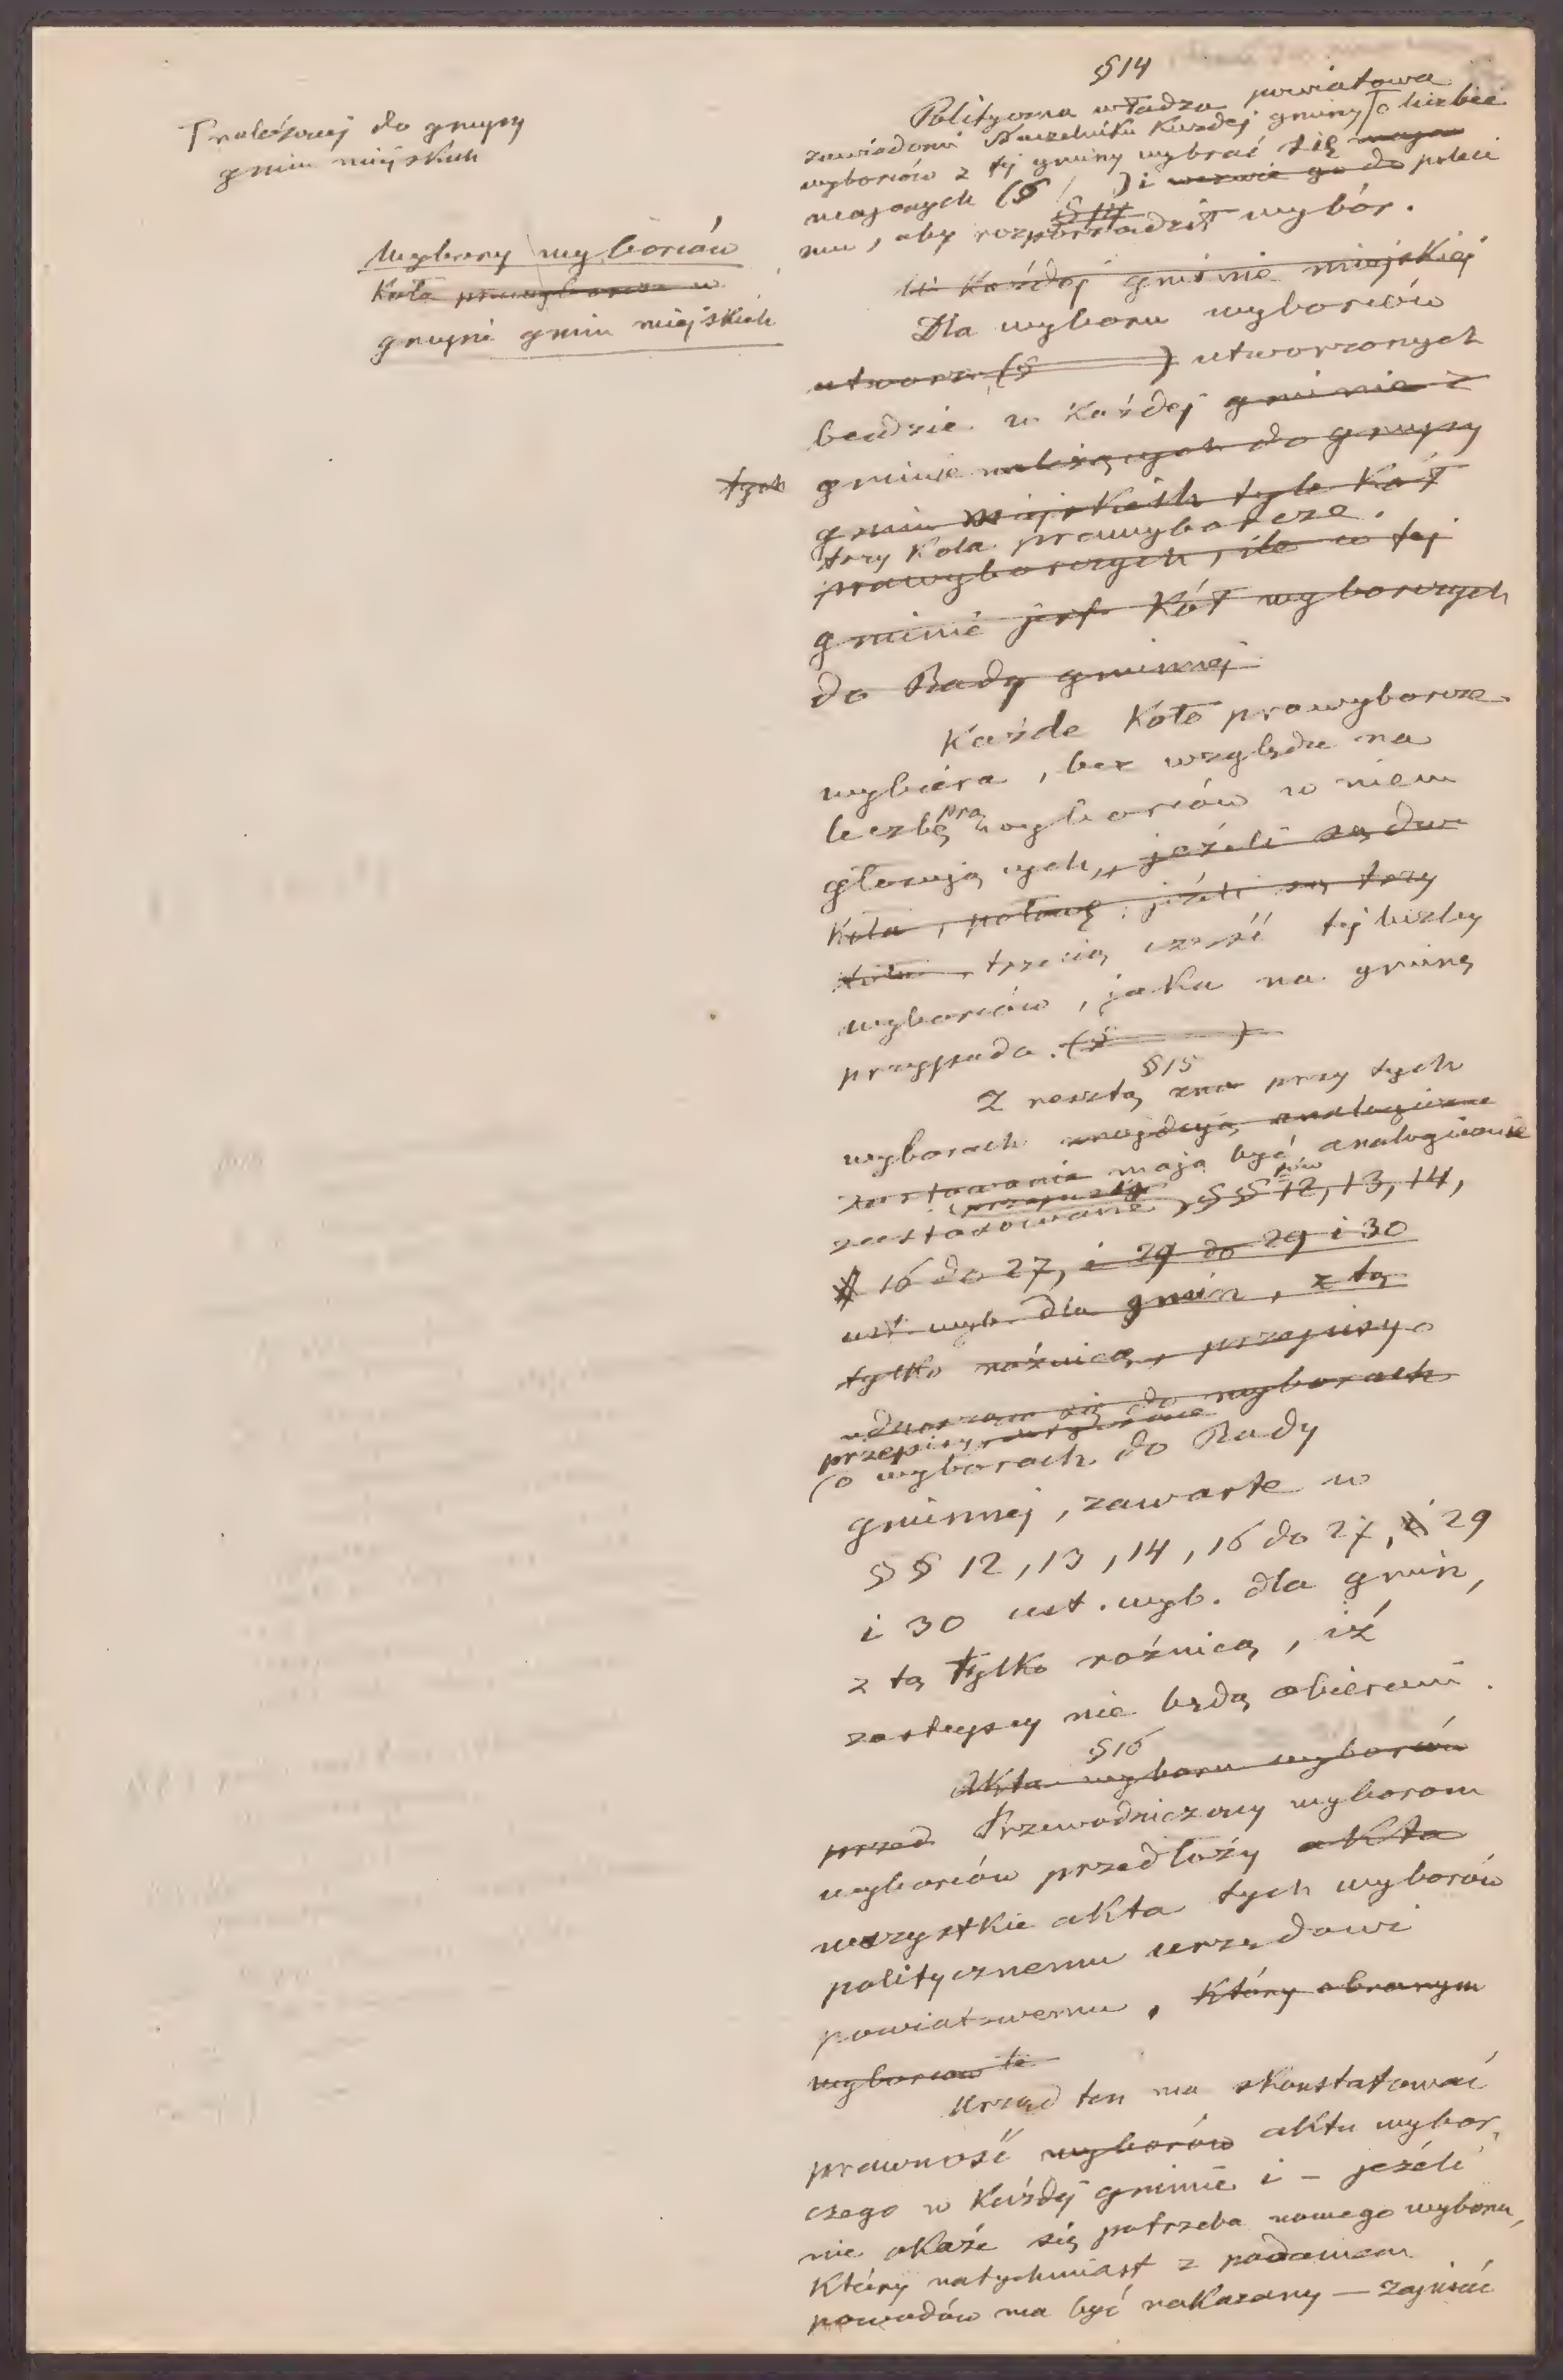 Γ należącej do grupy
gmin miejskich
Wybory wyborców
Koła prawyborcze w
grupie gmin miejskich
§14
Polityczna władza powiatowa
zawiadomi Naczelnika Każdej gminy Γ o liczbie
wyborców z tej gminy wybrać się mają
mających (§ ) i wezwie go do poleci
§ 14
mu, aby rozporządził wybór.
W Każdej gminie miejskiej
Dla wyboru wyborców
utworz (§ ) utworzonych
bendzie w Każdej gminie z
tych gminie należących do grupy
gmin miejskich tyle Kół
trzy Koła prawyborcze.
prawyborczych, ile w tej
gminie jest Kół wyborczych
do Rady gminnej
Każde Koło prawyborcze
wybiera, bez względu na
liczbę prawyborców w niem
głosujących, jeżeli są dwa
Koła, połowę, jeżeli są trzy
Koła, trzecią część tej liczby
wyborców, jaka na gminę
przypada. (§ )
§15
Z resztą zna przy tych
wyborach znajdują analogiczne
zastosowanie mają być analogicznie
przepisy
zastosowane, §§ 12, 13, 14,
16 do 27, i 29 do 29 i 30
ust. wyb. dla gmin, z tą
tylko różnicą, przepisy o
odnoszące się do wyborach
przepisy
(o wyborach do Rady
gminnej, zawarte w
§§ 12, 13, 14, 16 do 27, 29
i 30 ust. wyb. dla gmin,
z tą tylko rożnicą, iż
zastępcy nie będą obierani.
§16
Akta wyboru wyborców
przed Przewodniczący wyborom
wyborców przedłoży akta
wszystkie akta tych wyborów
politycznemu urzędowi
powiatowemu, Który obranym
wyborcom te
Urząd ten ma skonstatować
prawność wyborów aktu wybor,
czego w Każdej gminie i - jeźeli
nie okaźe się potrzeba nowego wyboru,
Który natychmiast z podaniem
powodów ma być nakazany — zapisać